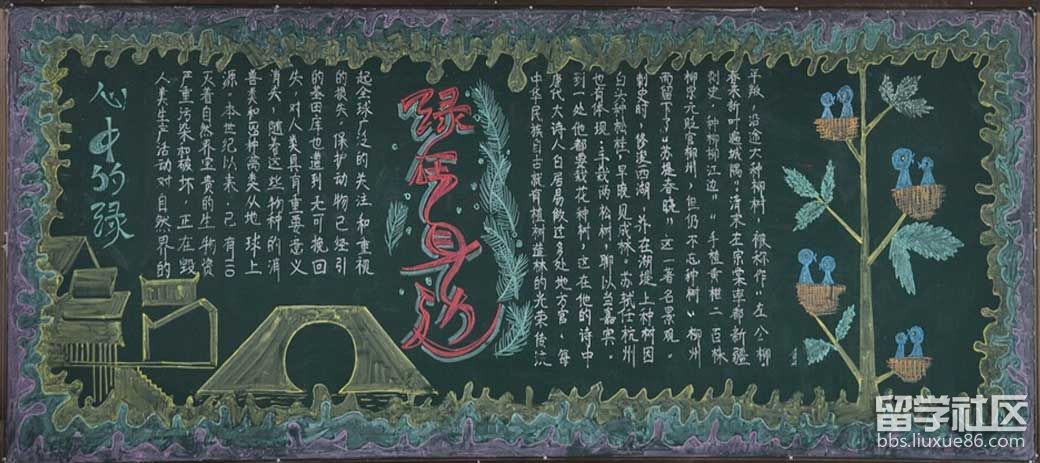 心中的绿
人类生产活动对自然界的
严重污染和破坏，正在毁
灭着自然界宝贵的生物资
源，本世纪以来，已有110
兽类和 种禽类从地球上
消失，随着这些物种的消
失，对人类具有重要意义
的基因库也遭到无可挽回
的损失，保护动物已经引
起全球广泛的关注和重视
绿在身边
中华民族自古就有植树造林的光荣传统
唐代大诗人白居易做过多处地方官，每
到一处他都要栽花种树，这在他的诗中
也有体现：手栽两松树，聊以当嘉宾。
白头种松桂，早晚见成林。苏轼任杭州
刺史时，修浚西湖，并在湖堤上种树因
而留下了“苏堤春晓”这一著名景观。
柳宗元贬官柳州，但仍不忘种树“柳州
刺史，种柳柳江边”“手植黄柑二百株
春来新叶遍城隅”清末左宗棠率部新疆
平叛，沿途大种柳树，被称作“左公柳
留学社区
bbs.liuxue86.com